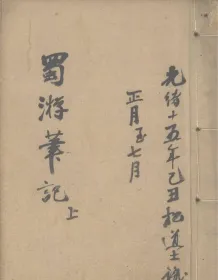 光緒十五年己丑松道士
正月至七月
蜀游筆記 上